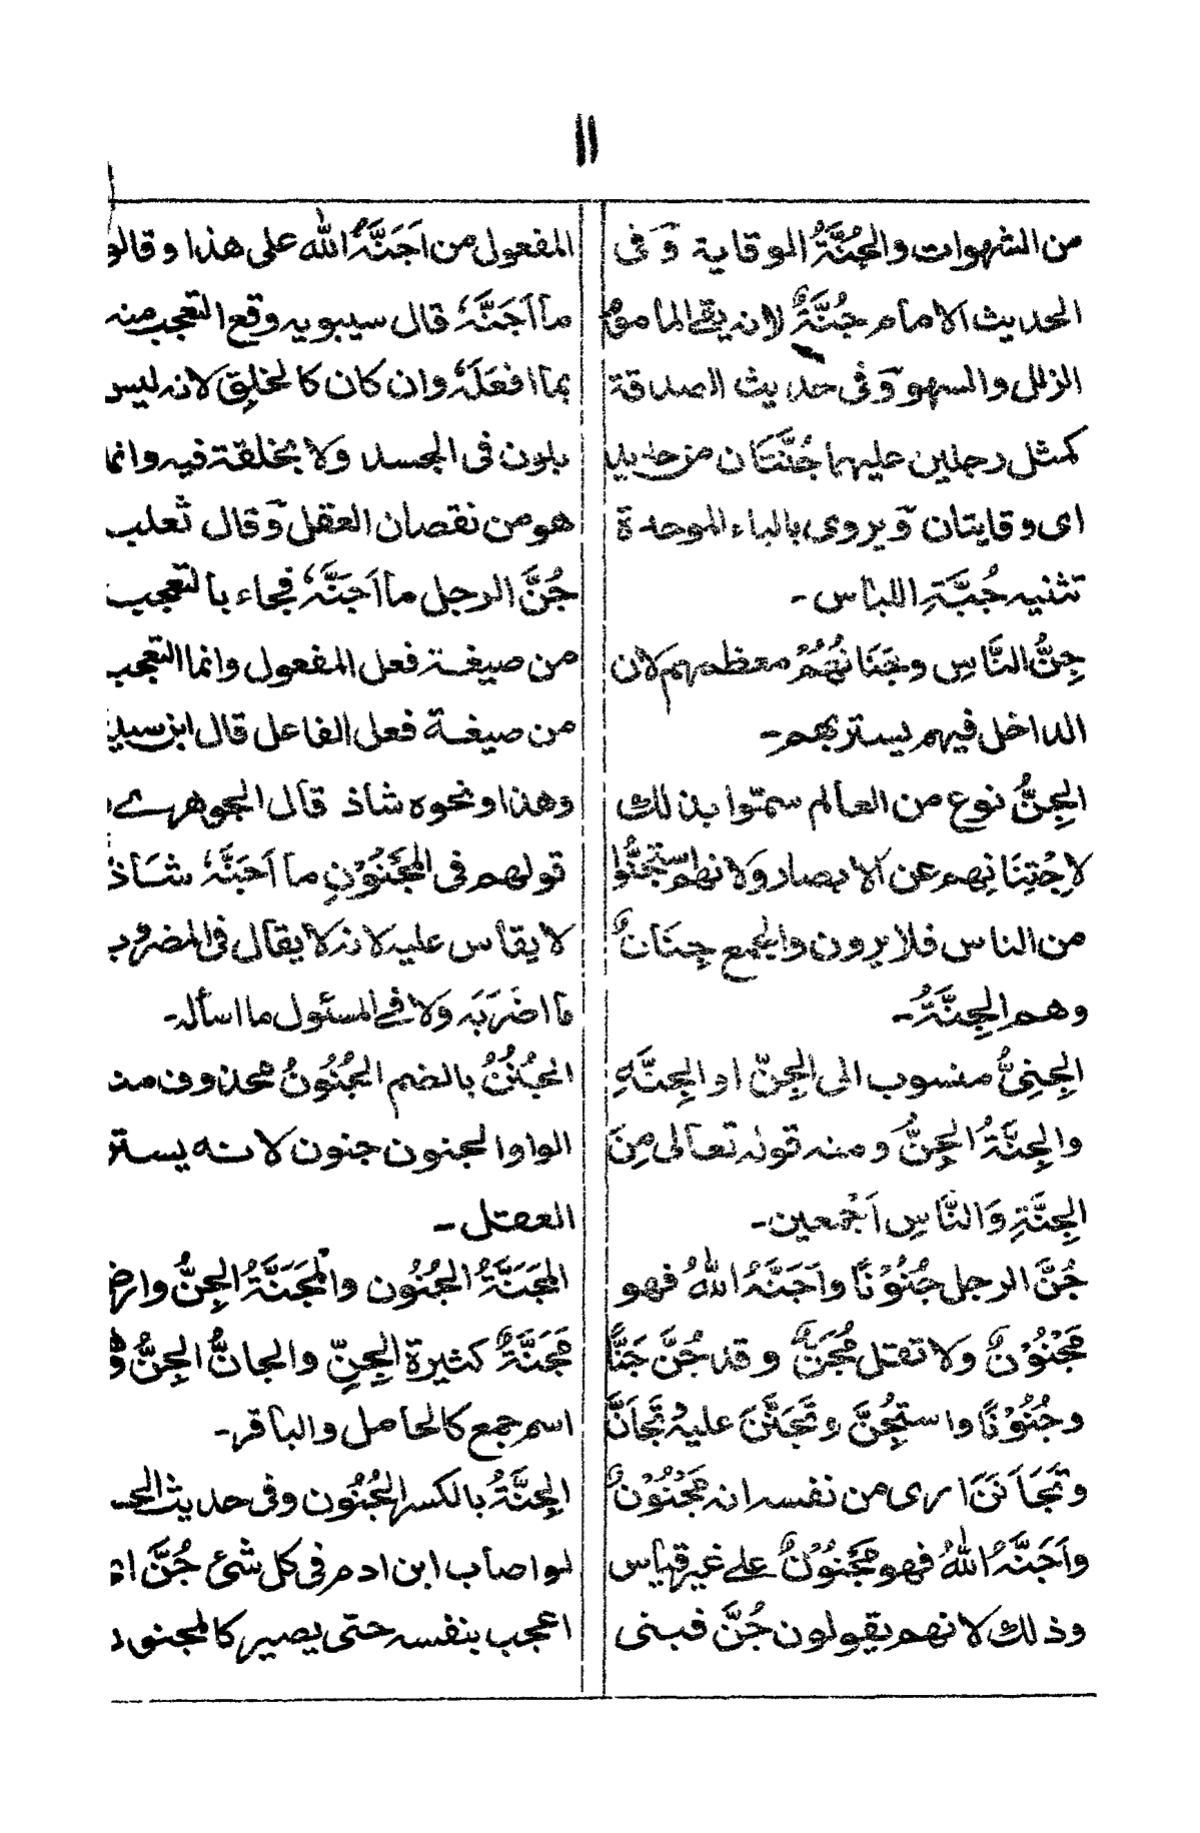 ۱۱
من الشهوات والجُنَّةُ الموقاية وَ فى
الحديث الامام جُنَّةٌ لانه يقى المأموم
الزلل والسهو وَفى حديث الصدقة
كمثل رجلين عليهما جُنَّتَان من حديد
اى وقايتان وَيروى بالباء الموحدة
تثنيه جُبَّةِ اللباس -
جِنُّ النَّاسِ وجَنَانُهُمْ معظمهم لان
الداخل فيهم يستتر بهم -
الجِنُّ نوع من العالم سمّوا بذلك
لاجْتِنَانِهم عن الابصار ولانهم اسْتَجَنُّوا
من الناس فلا يرون والجمع جِنَانٌ
وهم الجِنَّةُ -
الجِنِىُّ منسوب الى الجِنّ او الجِنَّةِ
والجِنَّةُ الجِنُّ ومنه قوله تعالى مِنَ
الجِنَّةِ وَالنَّاسِ اَجْمعين -
جُنَّ الرجل جُنُوْنًا واَجَنَّهُ اللهُ فهو
مَجْنُوْنٌ ولا تقل مُجَنٌّ وقد جُنَّ جَنًّا
وجُنُوْنًا واستجُنَّ وتَجَنَّنَ عليهْ وتَجَانَّ
وتَجَانَنَ ارى من نفسه انه مَجْنُوْنٌ
واَجَنَّهُ اللهُ فهو مَجْنُوْنٌ على غير قياس
وذلك لانهم يقولون جُنَّ فبنى
المفعول من اَجَنَّهُ الله على هذا وقالو
ما اَجَنَّهٗ قال سيبويه وقع التعجب منه
بما افعَلَهٗ وان كان كالخلِق لانه ليس
بلون فى الجسد ولا بخلقة فيه وانما
هو من نقصان العقل وَقال ثعلب
جُنَّ الرجل ما اَجَنَّهٗ فجاء بالتعجب
من صيغة فعل المفعول وانما التعجب
من صيغة فعل الفاعل قال ابن سيد
وهذا ونحوه شاذ قال الجوهرے
قولهم فى المَجْنُوْنِ ما اَجَنَّهٗ شَاذ
لا يقاس عليه لانه لا يقال فى المضروب
ما اضَرَبَه ولا فے المسئول ما اسأله -
الجُنُنُ بالضم الجُنُوْنُ محذوف منه
الواو الجنون جنون لانه يستر
العقل -
المَجَنَّةُ الجُنُوْن والْمَجَنَّةُ الجِنُّ وارض
مَجَنَّةٌ كثيرة الجِنِّ والجانُّ الجِنُّ وُ
اسم جمع كالحامل والباقر -
الجِنَّةُ بالكسر الجُنُوْن وفى حديث الحسـ
لو اصاب ابن ادم فى كل شئ جُنَّ اى
اعجب بنفسه حتى يصير كالمجنون